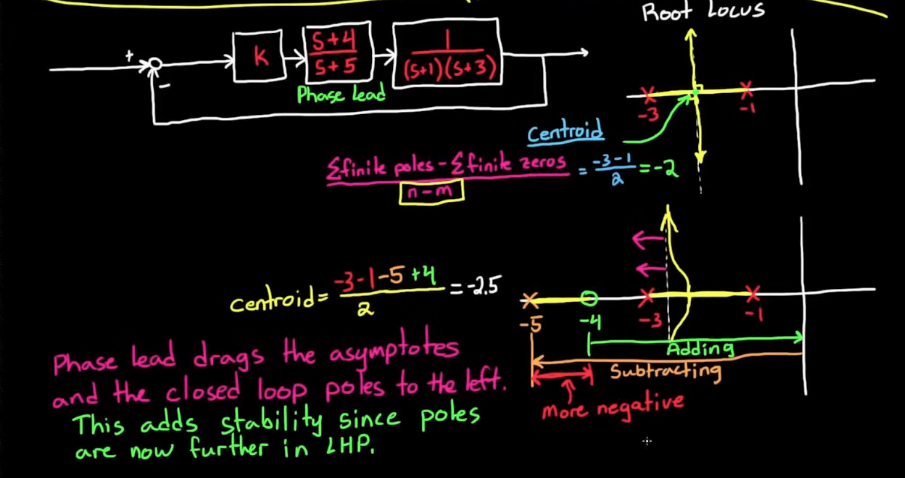 Root Locus
+
-
K
s+4
s+5
1
(s+1)(s+3)
Phase lead
-3
-1
Centroid
Σfinite poles - Σfinite zeros
n-m
= -3-1
2
= -2
centroid = -3-1-5+4
2
= -2.5
-5
-4
-3
-1
Adding
Subtracting
More negative
Phase lead drags the asymptotes
and the closed loop poles to the left.
This adds stability since poles
are now further in LHP.